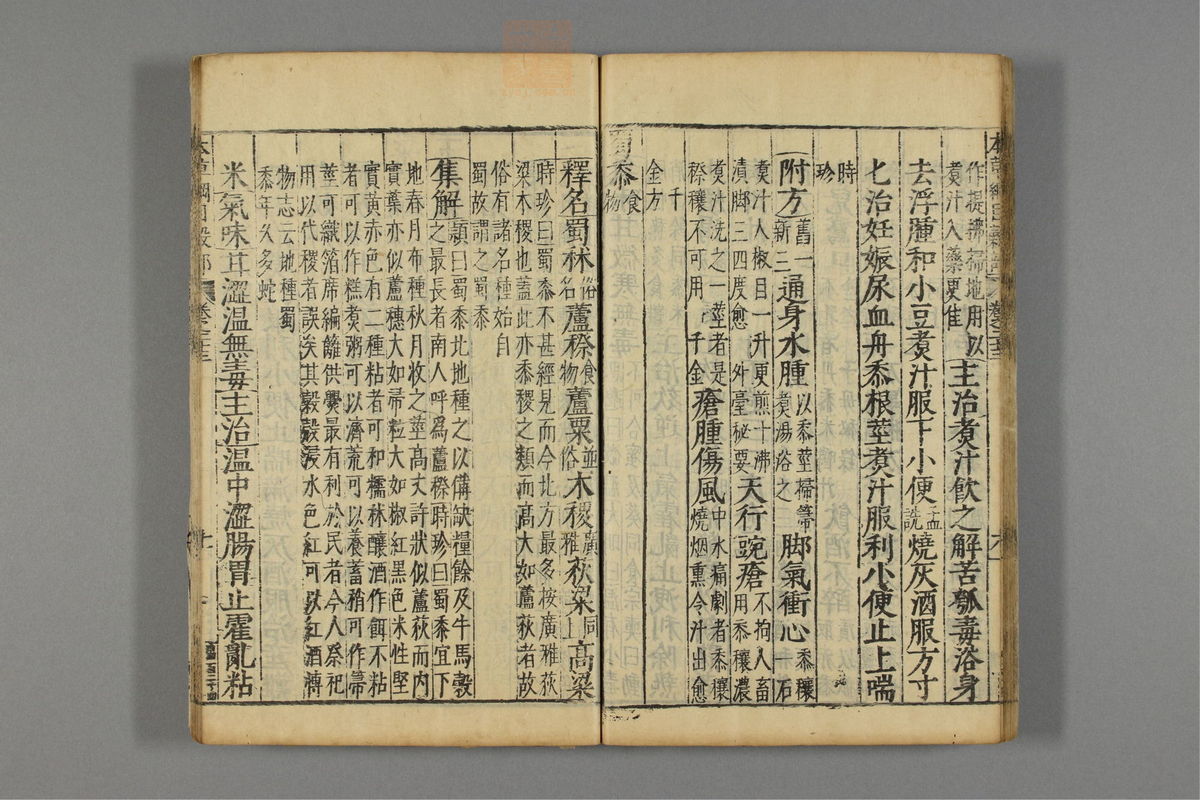 作提拂掃地用以
煑汁入藥更佳
主治煑汁飲之解苦瓠毒浴身
去浮腫和小豆煑汁服下小便孟詵燒灰酒服方寸
匕治妊娠尿血丹黍根莖煑汁服利小便止上喘
時珍
附方舊一新三通身水腫以黍莖掃箒煑湯浴之脚氣衝心黍穰一石
煑汁入椒目一升更煎十沸
漬脚三四度愈 外臺秘要天行豌瘡不拘人畜用黍穰濃
煑汁洗之一莖者是
穄穰不可用 千金瘡腫傷風中水痛劇者黍穰燒烟熏令汁出愈
千金方
蜀黍食物
釋名蜀秫俗名蘆穄食物蘆粟並俗木稷廣雅荻粱同上高粱
時珍曰蜀黍不甚經見而今北方最多按廣雅荻
粱木稷也蓋此亦黍稷之類而高大如蘆荻者故
俗有諸名種始自
蜀故謂之蜀黍
集解頴曰蜀黍北地種之以備缺糧餘及牛馬穀
之最長者南人呼爲蘆穄時珍曰蜀黍宜下
地春月布種秋月收之莖高丈許狀似蘆荻而内
實葉亦似蘆穗大如帚粒大如椒紅黑色米性堅
實黄赤色有二種粘者可和糯秫釀酒作餌不粘
者可以作糕煑粥可以濟荒可以養畜稍可作帚
莖可織箔席編籬供爨最有利於民者今人祭祀
用以代稷者誤矣其穀殻浸水色紅可以紅酒博
物志云地種蜀
黍年久多蛇
米氣味甘澀温無毒主治温中澀腸胃止霍亂粘